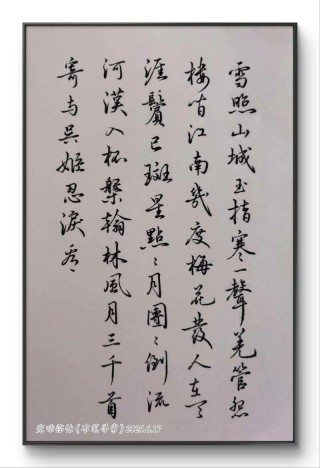 雪照山城玉指寒一聲羌管怨
樓間江南幾度梅花發人在天
涯鬢已斑星點〻月團〻倒流
河漢入杯槃翰林風月三千首
寄与吳姬忍淚看
2025.6.17